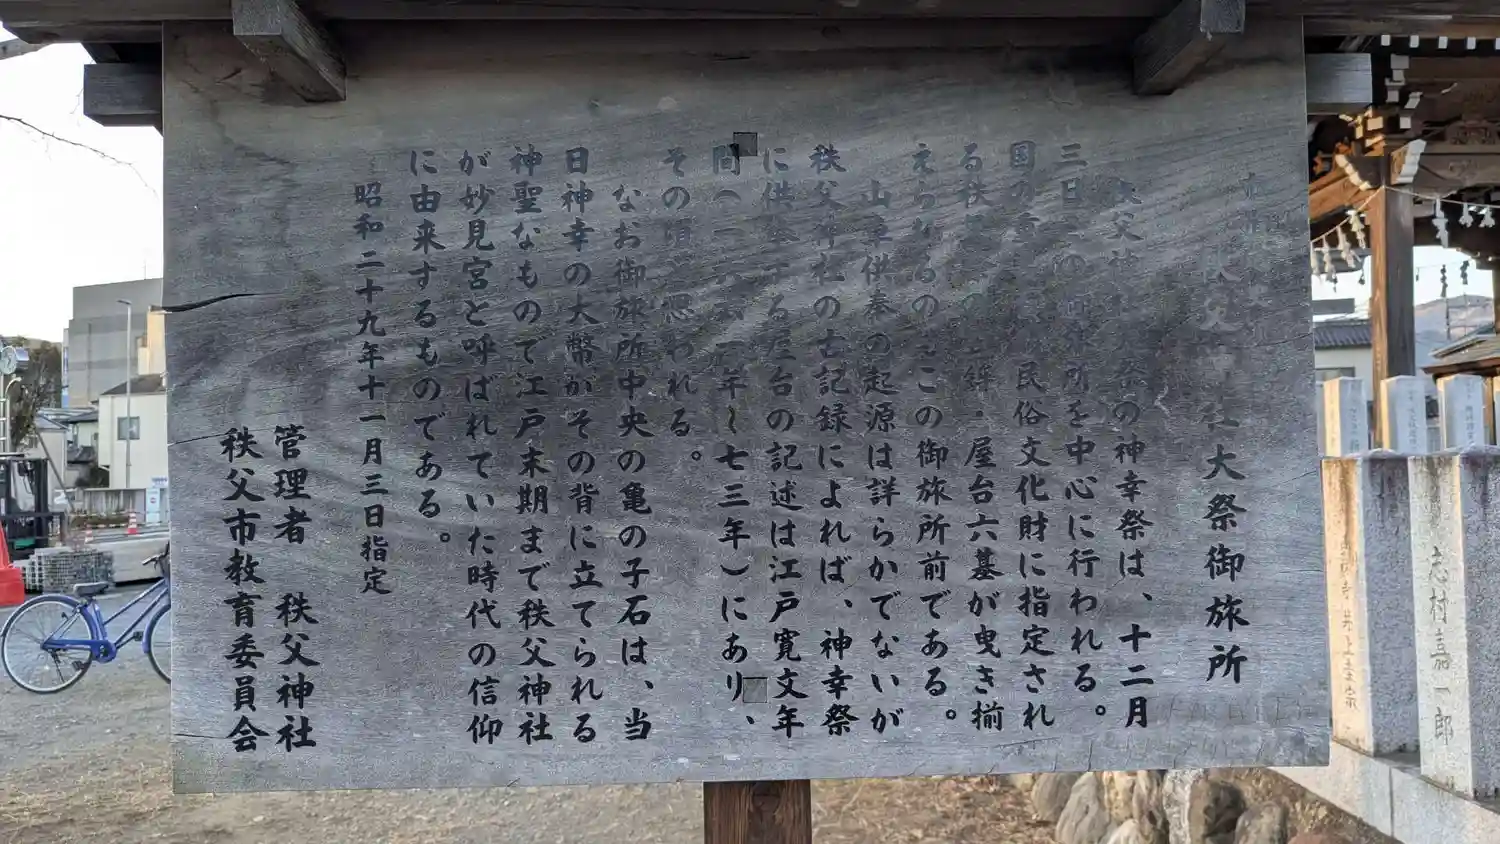 社大祭御旅所
秩父神社 祭の神幸祭は、十二月
三日 の御旅所を中心に行われる。
国の重 民俗文化財に指定され
る秩 の 鉾・屋台六基が曳き揃
えられるのもこの御旅所前である。
山車供奉の起源は詳らかでないが
秩父神社の古記録によれば、神幸祭
に供奉する屋台の記述は江戸寛文年
間(一 年~七三年)にあり、
その頃と思われる。
なお御旅所中央の亀の子石は、当
日神幸の大幣がその背に立てられる
神聖なもので江戸末期まで秩父神社
が妙見宮と呼ばれていた時代の信仰
に由来するものである。
昭和二十九年十一月三日指定
管理者 秩父神社
秩父市教育委員会
志村嘉一郎